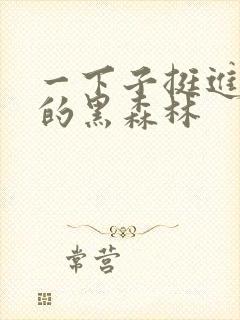 一下子挺进
的黑森林
常营